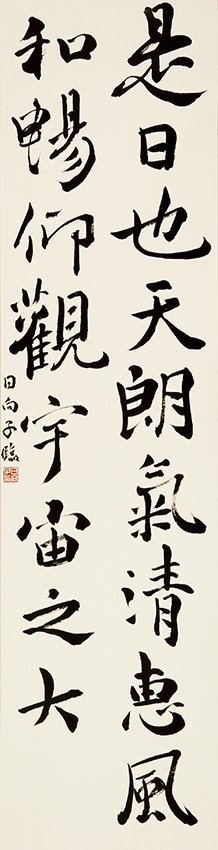 是日也天朗氣清恵風
和暢仰觀宇宙之大
日向子臨